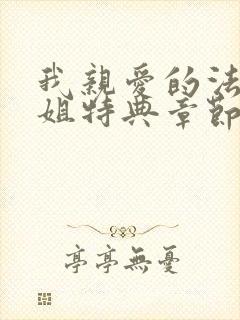 我親愛的法
姐特典章節
亭亭無憂